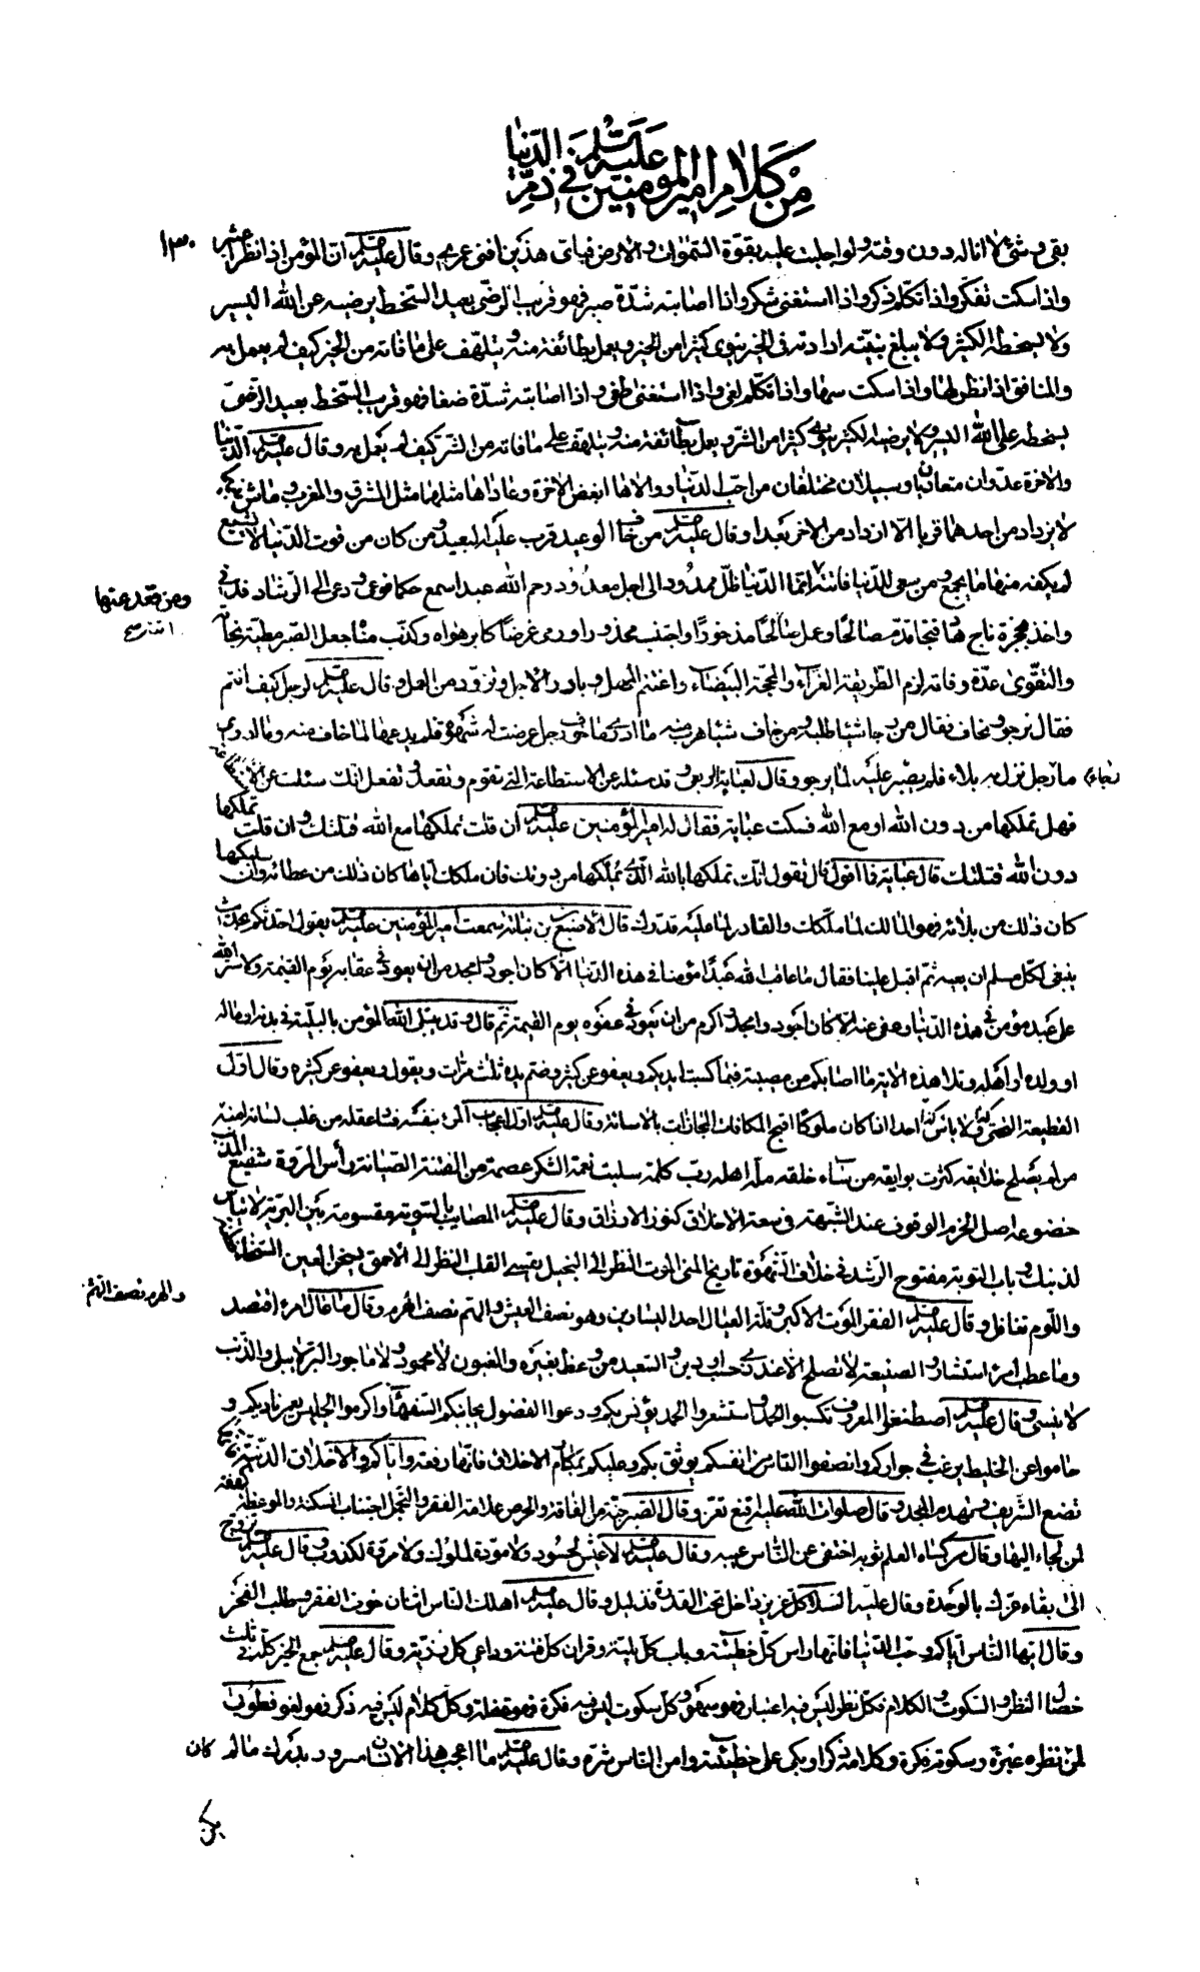 من كلام امير المومنين عليه السلم في ذم الدنيا
١٣٠
بقى وشئ لا اناله دون وقته ولو اجلبت عليه بقوة السموات والارض فباى هذين افنى عمرى وقال عليه السلم ان المؤمن اذا نظر اعتبر
واذا سكت تفكر واذا تكلم ذكر واذا استغنى شكر واذا اصابته شدة صبر فهو قريب الرضى بعيد السخط يرضيه عن الله اليسير
ولا يسخطه الكثير ولا يبلغ بنيته ارادته فى الخير ينوى كثيرا من الخير ويعمل بطائفة منه ويتلهف على ما فاته من الخير كيف لم يعمل به
والمنافق اذا نظر لها واذا سكت سها واذا تكلم لغى واذا استغنى طغى واذا اصابته شدة ضغا فهو قريب السخط بعيد الرضى
يسخطه على الله اليسير ولا يرضيه الكثير ينوى كثيرا من الشر ويعمل بطائفة منه ويتلهف على ما فاته من الشر كيف لم يعمل به وقال عليه السلم الدنيا
والاخرة عدوان متعاديان وسبيلان مختلفان من احب الدنيا ووالاها ابغض الاخرة وعاداها مثلهما مثل المشرق والمغرب وماش بينهما
لا يزداد من احدهما قربا الا ازداد من الاخر بعدا وقال عليه السلم من خاف الوعيد قرب عليه البعيد ومن كان من قوت الدنيا لا يشبع
لم يكفه منها ما يجمع ومن سعى للدنيا فاتته انما الدنيا ظل ممدود الى اجل معدود رحم الله عبدا سمع حكما فوعى ودعى الى الرشاد فدنى
ومن قعد عنها اتته صح
واخذ بحجزة ناج هاد فنجا قدم صالحا وعمل صالحا مذخورا واجتنب محذورا ورمى غرضا كابر هواه وكذب مناه جعل الصبر مطية نجاته
والتقوى عدة وفاته لزم الطريقة الغراء والمحجة البيضاء واغتنم المهل وبادر الاجل وتزود من العمل وقال عليه السلم لرجل كيف انتم
فقال نرجو ونخاف فقال من رجا شيئا طلبه ومن خاف شيئا هرب منه ما ادرى ما خوف رجل عرضت له شهوة فلم يدعها لما خاف منه وما ادرى
ما رجاء رجل نزل به بلاء فلم يصبر عليه لما يرجو وقال لعباية بن ربعى وقد سئله عن الاستطاعة التى تقوم وتقعد وتفعل انك سئلت عن الاستطاعة
فهل تملكها من دون الله او مع الله فسكت عباية فقال له امير المؤمنين عليه السلم ان قلت تملكها مع الله قتلتك وان قلت تملكها
دون الله قتلتك قال عباية فما اقول قال تقول انك تملكها بالله الذى يملكها من دونك فان ملكك اياها كان ذلك من عطائه وان سلبكها
كان ذلك من بلائه فهو المالك لما ملكك والقادر لما عليه قدرك قال الاصبغ بن نباتة سمعت امير المؤمنين عليه السلم يقول احدثكم بحديث
ينبغى لكل مسلم ان يعيه ثم اقبل علينا فقال ما عاقب الله عبدا مؤمنا فى هذه الدنيا الا كان اجود وامجد من ان يعود فى عقابه يوم القيمة ولا ستر الله
على عبد مؤمن فى هذه الدنيا وعفى عنه الا كان اجود وامجد واكرم من ان يعود فى عفوه يوم القيمة ثم قال وقد يبتلى الله المؤمن بالبلية فى بدنه او ماله
او ولده او اهله وتلا هذه الاية ما اصابكم من مصيبة فبما كسبت ايديكم ويعفو عن كثير وضم يده ثلث مرات ويقول ويعفو عن كثير وقال اول
احدا اذا كان ملوكا اقبح المكافات المجازات بالاسائة وقال عليه السلم اول اعجاب المرء بنفسه فساد عقله من غلب لسانه امنه
من لم يصلح خلايقه كثرت بوايقه من ساء خلقه مله اهله رب كلمة سلبت نعمة الشكر عصمة من الفتنة الصيانة رأس المروة شفيع المذنب
خضوعه اصل الحزم الوقوف عند الشبهة فى سعة الاخلاق كنوز الارزاق وقال عليه السلم المصايب بالسوية مقسومة بين البرية لا تيأس
لذنبك وباب التوبة مفتوح الرشد فى خلاف الشهوة تاريخ المنى الموت النظر الى البخيل يقسى القلب النظر الى الاحمق يسخن العين السخاء
واللوم تغافل وقال عليه السلم الفقر الموت الاكبر وقلة العيال احد اليسارين وهو نصف العيش والهم نصف الهرم وقال ما عال امرء اقتصد
وما عطب امرء استشار والصنيعة لا تصلح الا عند ذى حسب او دين والسعيد من وعظ بغيره والمغبون لا محمود ولا ماجور البر لا يبلى والذنب
لا ينسى وقال عليه السلم اصطنعوا المعروف تكسبوا الحمد واستشعروا الحمد يؤنس بكم ودعوا الفضول يجانبكم السفهاء واكرموا الجليس يعمر ناديكم و
حاموا عن الخليط يرغب فى جواركم وانصفوا الناس من انفسكم يوثق بكم وعليكم بمكارم الاخلاق فانها رفعة واياكم والاخلاق الدنية فانها
تضع الشريف وتهدم المجد وقال صلوات الله عليه اقنع تعز وقال الصبر جنة من الفاقة والحرص علامة الفقر والتجمل اجتناب المسكنة والموعظة كهف
لمن لجاء اليها وقال من كساه العلم ثوبه اختفى عن الناس عيبه وقال عليه السلم لا عيش لحسود ولا مودة لملوك ولا مروة لكذوب وقال عليه السلم تروح
الى بقاء عزك بالوحدة وقال عليه السلام كل عزيز داخل تحت القدرة فذليل وقال عليه السلم اهلك الناس اثنان خوف الفقر وطلب الفخر
وقال ايها الناس اياكم وحب الدنيا فانها راس كل خطيئة وباب كل بلية وقران كل فتنة وداعى كل رزية وقال عليه السلم جمع الخير كله فى ثلث
خصال النظر والسكوت والكلام فكل نظر ليس فيه اعتبار فهو سهو وكل سكوت ليس فيه فكرة فهو غفلة وكل كلام ليس فيه ذكر فهو لغو فطوبى
لمن نظره عبرة وسكوته فكرة وكلامه ذكرا وبكى على خطيئته وامن الناس شره وقال عليه السلم ما اعجب هذا الانسان مسرور بدرك ما لم كان
يكن